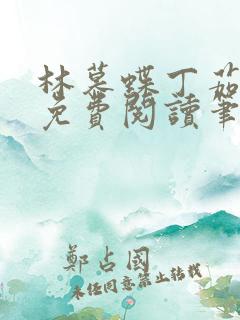 林慕蝶丁茹
免費閱讀筆
鄭占國
未经同意禁止转载